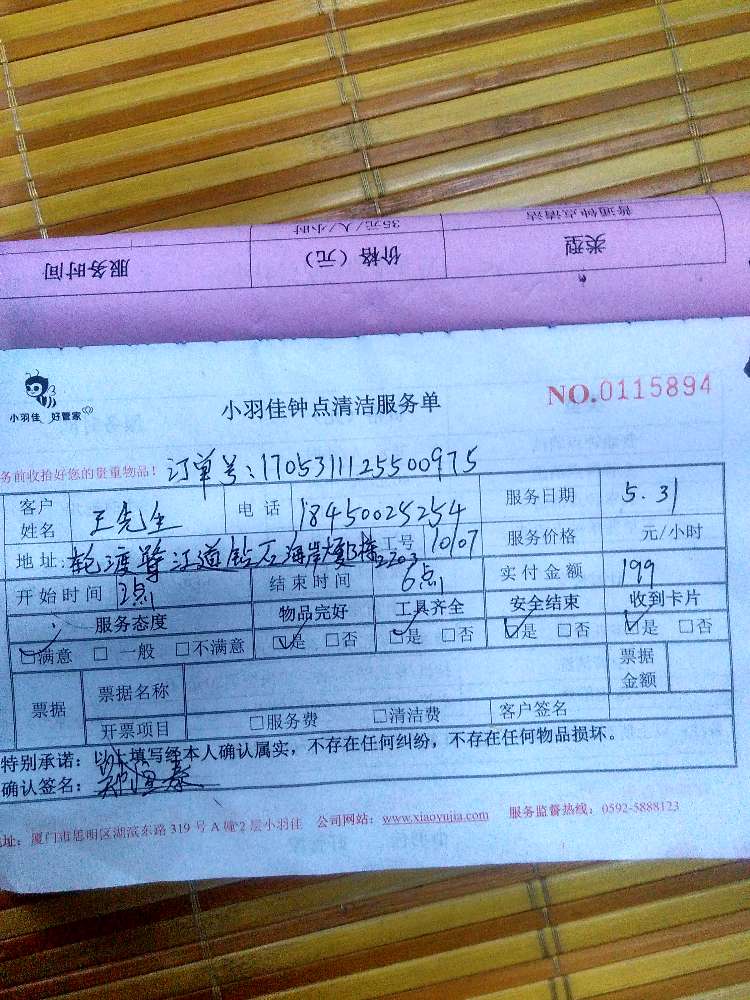 普通钟点清洁 35元/人/小时
类型 价格（元） 服务时间
小羽佳 好管家
小羽佳钟点清洁服务单
NO.0115894
务前收拾好您的贵重物品！ 订单号：1705311125500975
客户姓名 王先生 电话 18450025254 服务日期 5.31
地址: 轮渡鹭江道钻石海岸B栋2203 工号 1007 服务价格 元/小时
开始时间 2点 结束时间 6点 实付金额 199
服务态度 物品完好 工具齐全 安全结束 收到卡片
☑满意 □一般 □不满意 ☑是 □否 ☑是 □否 ☑是 □否 ☑是 □否
票据 票据名称 票据金额
开票项目 □服务费 □清洁费 客户签名
特别承诺：以上填写经本人确认属实，不存在任何纠纷，不存在任何物品损坏。
确认签名：
址：厦门市思明区湖滨东路 319 号 A 幢 2 层小羽佳 公司网站：www.xiaoyujia.com 服务监督热线：0592-5888123